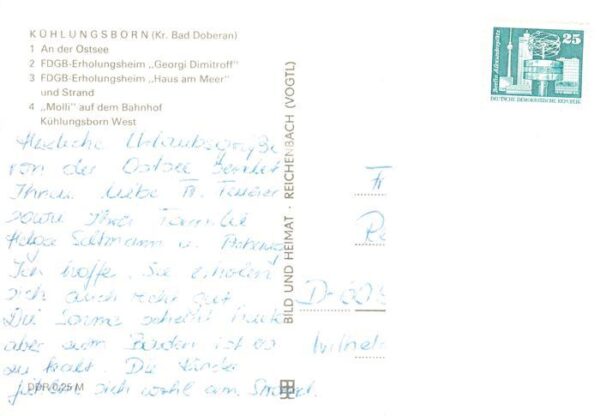 KÜHLUNGSBORN (Kr. Bad Doberan)
1 An der Ostsee
2 FDGB-Erholungsheim „Georgi Dimitroff"
3 FDGB-Erholungsheim „Haus am Meer"
und Strand
4 „Molli" auf dem Bahnhof
Kühlungsborn West
Herzliche Urlaubsgrüße
von der Ostsee sendet
Ihnen liebe Fr.
sowie Ihrer Familie
Helga u.
Ich hoffe, Sie erholen
sich auch recht gut.
Die Sonne scheint
aber zum Baden ist es
zu kalt. Die Kinder
fühlen sich wohl am Strand.
DDR 0,25 M
BILD UND HEIMAT · REICHENBACH (VOGTL)
25
Berlin, Alexanderplatz
DEUTSCHE DEMOKRATISCHE REPUBLIK
Fr
Re
Wilhel